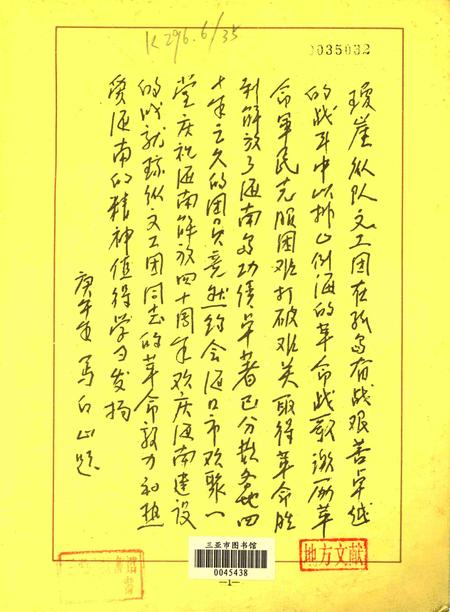 K296.6/35
0035032
琼崖纵队文工团在孤岛奋战艰苦卓越
的战斗中以排山倒海的革命战歌激励革
命军民克服困难打破难关取得革命胜
利解放了海南岛功绩卓著已分散各地四
十年之久的团员竟然约会海口市欢聚一
堂庆祝海南解放四十周年欢庆海南建设
的成就琼纵文工团同志的革命毅力和热
爱海南的精神值得学习发扬
庚午年马白山题
三亚市图书馆
0045438
—1—
地方文献